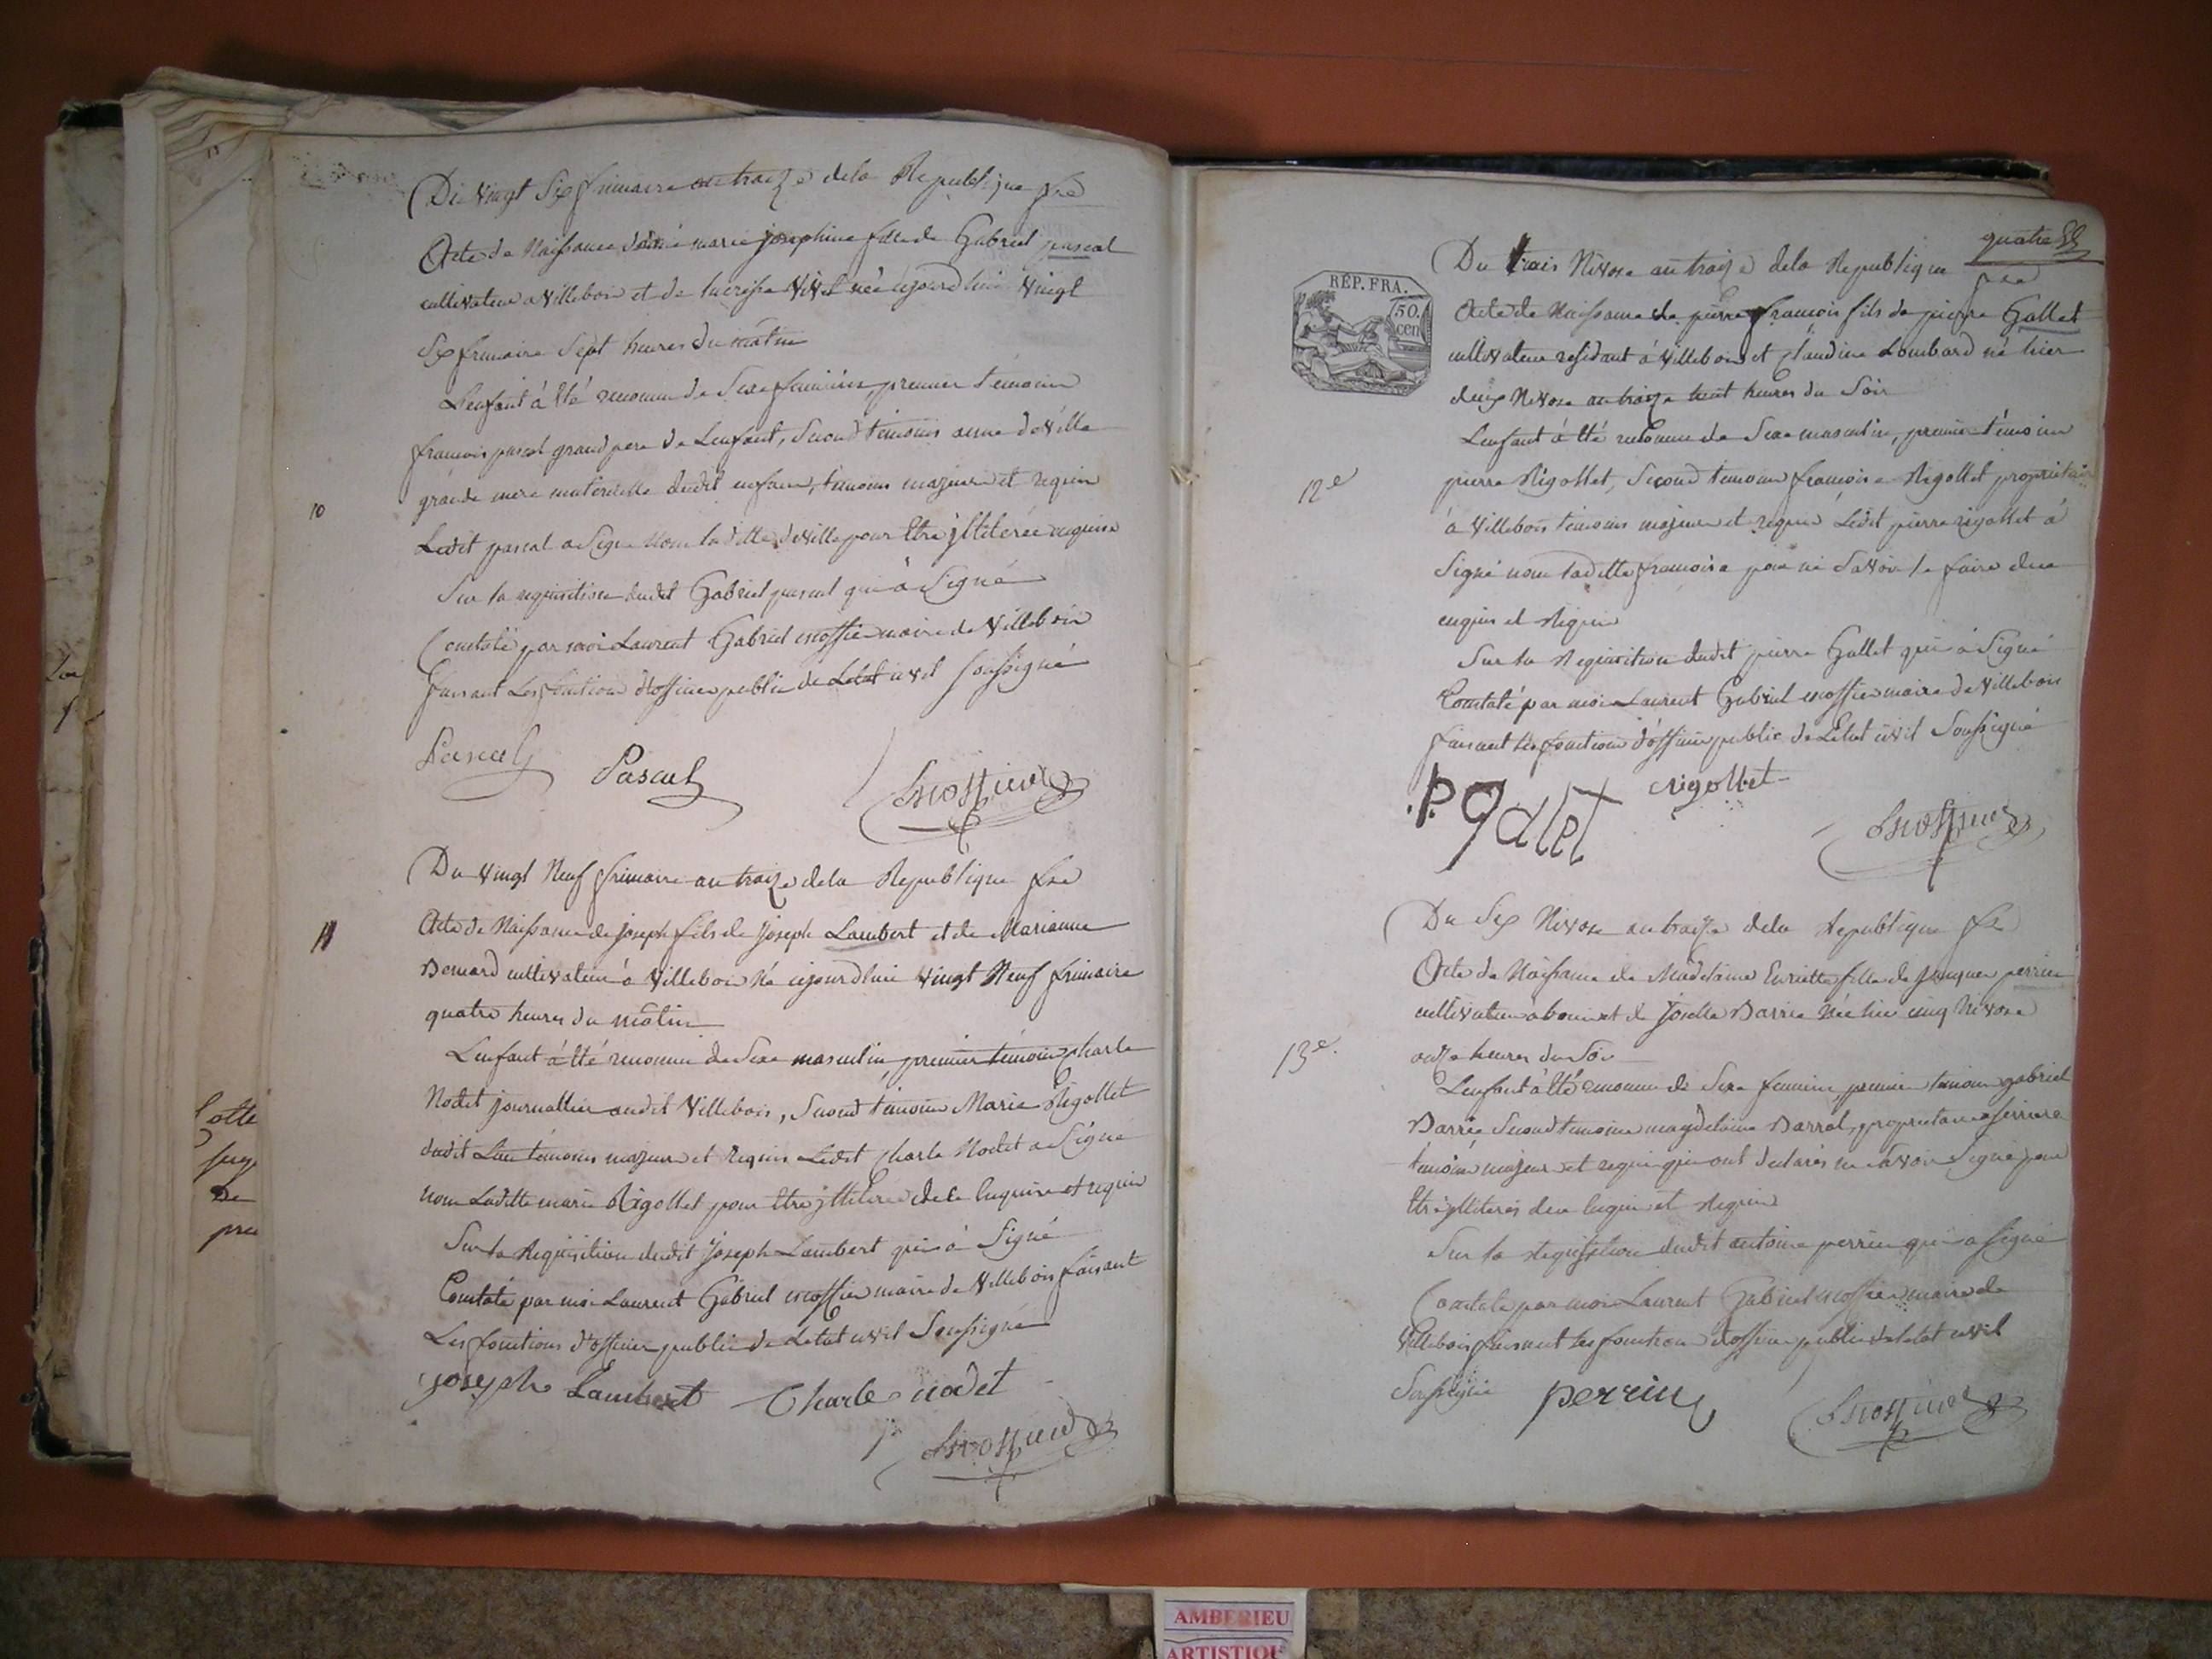 Du Vingt Six frimaire an traize dela Republique fre
Acte de Naissance marie josephine fille de Gabriel pascal
cultivateur a Villebois et de lucresse Vivet née cejourdhui Vingt
Six frimaire Sept heures du matin
Lenfant à Eté reconnu de Sexe feminin, premier temoin
francois pascal grand pere de Lenfant, Second temoin deville
grande mere maternelle dudit enfant, temoins majeurs et requis
10
Ledit pascal a Signé Non laditte deville pour Etre jlliterée enquise
Sur la requisition dudit Gabriel pascal qui à Signé
Constaté par moi Laurent Gabriel escoffier maire de Villebois
faisant Les fonctions d'officier public de Letat civil Soussigné
Pascal
Pascal
Escoffier
Du Vingt Neuf frimaire an traize dela Republique fre
11
Acte de Naissance de joseph fils de joseph Lambert et de Marianne
Benard cultivateur à Villebois Né cejourdhui Vingt Neuf frimaire
quatre heures du matin
Lenfant à Eté reconnu de Sexe masculin, premier temoin Charle
Nodet journallier audit Villebois, Second temoin Marie Rigollet
dudit Lieu temoins majeurs et requis Ledit Charle Nodet a Signé
non Laditte marie Rigollet pour Etre jlliterée de ce Enquise et requise
Sur la Requisition dudit joseph Lambert qui à Signé
Constaté par moi Laurent Gabriel escoffier maire de Villebois faisant
Les fonctions d'officier public de Letat civil Soussigné
joseph Lambert
Charle nodet
Escoffier
quatre
Du trois Nivose an traize dela Republique fre
REP. FRA.
50.
cen
Acte de Naissance de pierre francois fils de pierre Gallet
cultivateur residant à Villebois et Claudine Lombard né hier
deux Nivose an traize huit heures du Soir
Lenfant à Eté reconnu de Sexe masculin, premier temoin
12e
pierre Rigollet, Second temoin francoise Rigollet proprietaire
à Villebois temoins majeurs et requis Ledit pierre rigollet à
Signé non laditte francoise pour ne Savoir le faire dece
enquis et Requis
Sur la Requisition dudit pierre Gallet qui à Signé
Constaté par moi Laurent Gabriel escoffier maire de Villebois
faisant les fonctions d'officier public de Letat civil Soussigné
.P. galet
rigollet
Escoffier
Du Six Nivose an traize dela Republique fre
Acte de Naissance de Madelaine Enriette fille de jacques perrin
cultivateur a bouis et de josette Barrie Née hier cinq Nivose
13e.
onze heures du Soir
Lenfant à Eté reconnu de Sexe feminin, premier temoin gabriel
Barrie, Second temoin magdelaine Barral, propriétaires
temoins majeurs et requis qui ont declarés ne Savoir Signé pour
Etre jlliterés dece Enquis et Requis
Sur la requisition dudit antoine perrin qui a signé
Constaté par moi Laurent Gabriel escoffier maire de
Villebois faisant Les fonctions d'officier public de letat civil
Soussigné
perrin
Escoffier
AMBERIEU
ARTISTIQU